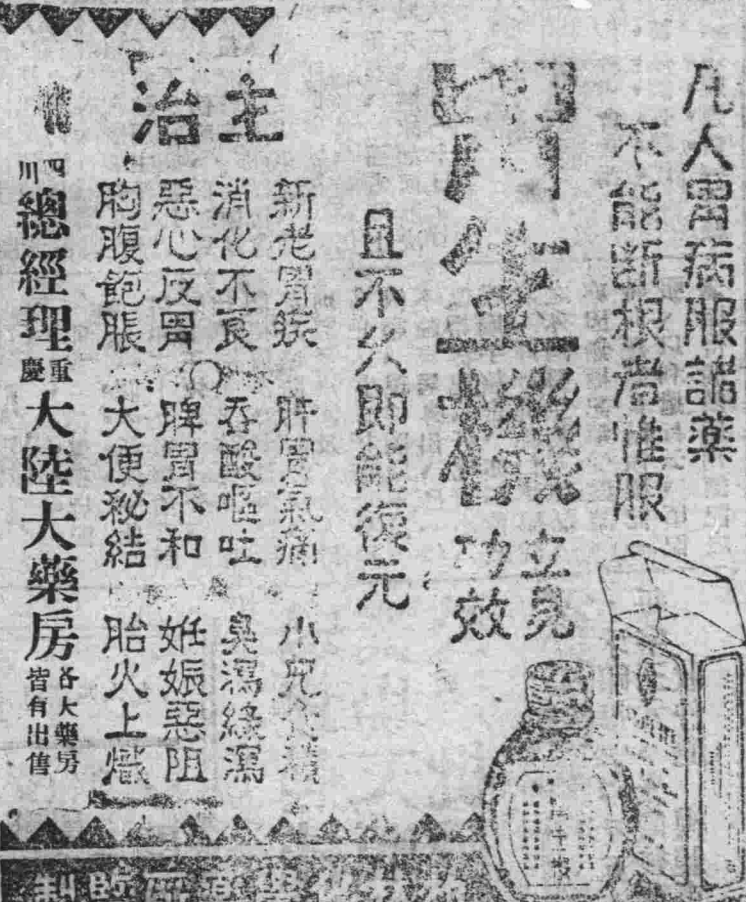 凡人胃病服諸藥
不能斷根者惟服
胃生機
立見
功效
且不久即能復元
主治
新老胃疾
肝胃氣痛
小兒食積
消化不良
吞酸嘔吐
臭瀉綠瀉
惡心反胃
脾胃不和
姙娠惡阻
胸腹飽脹
大便秘結
胎火上熾
四川總經理重慶大陸大藥房
各大藥房
皆有出售